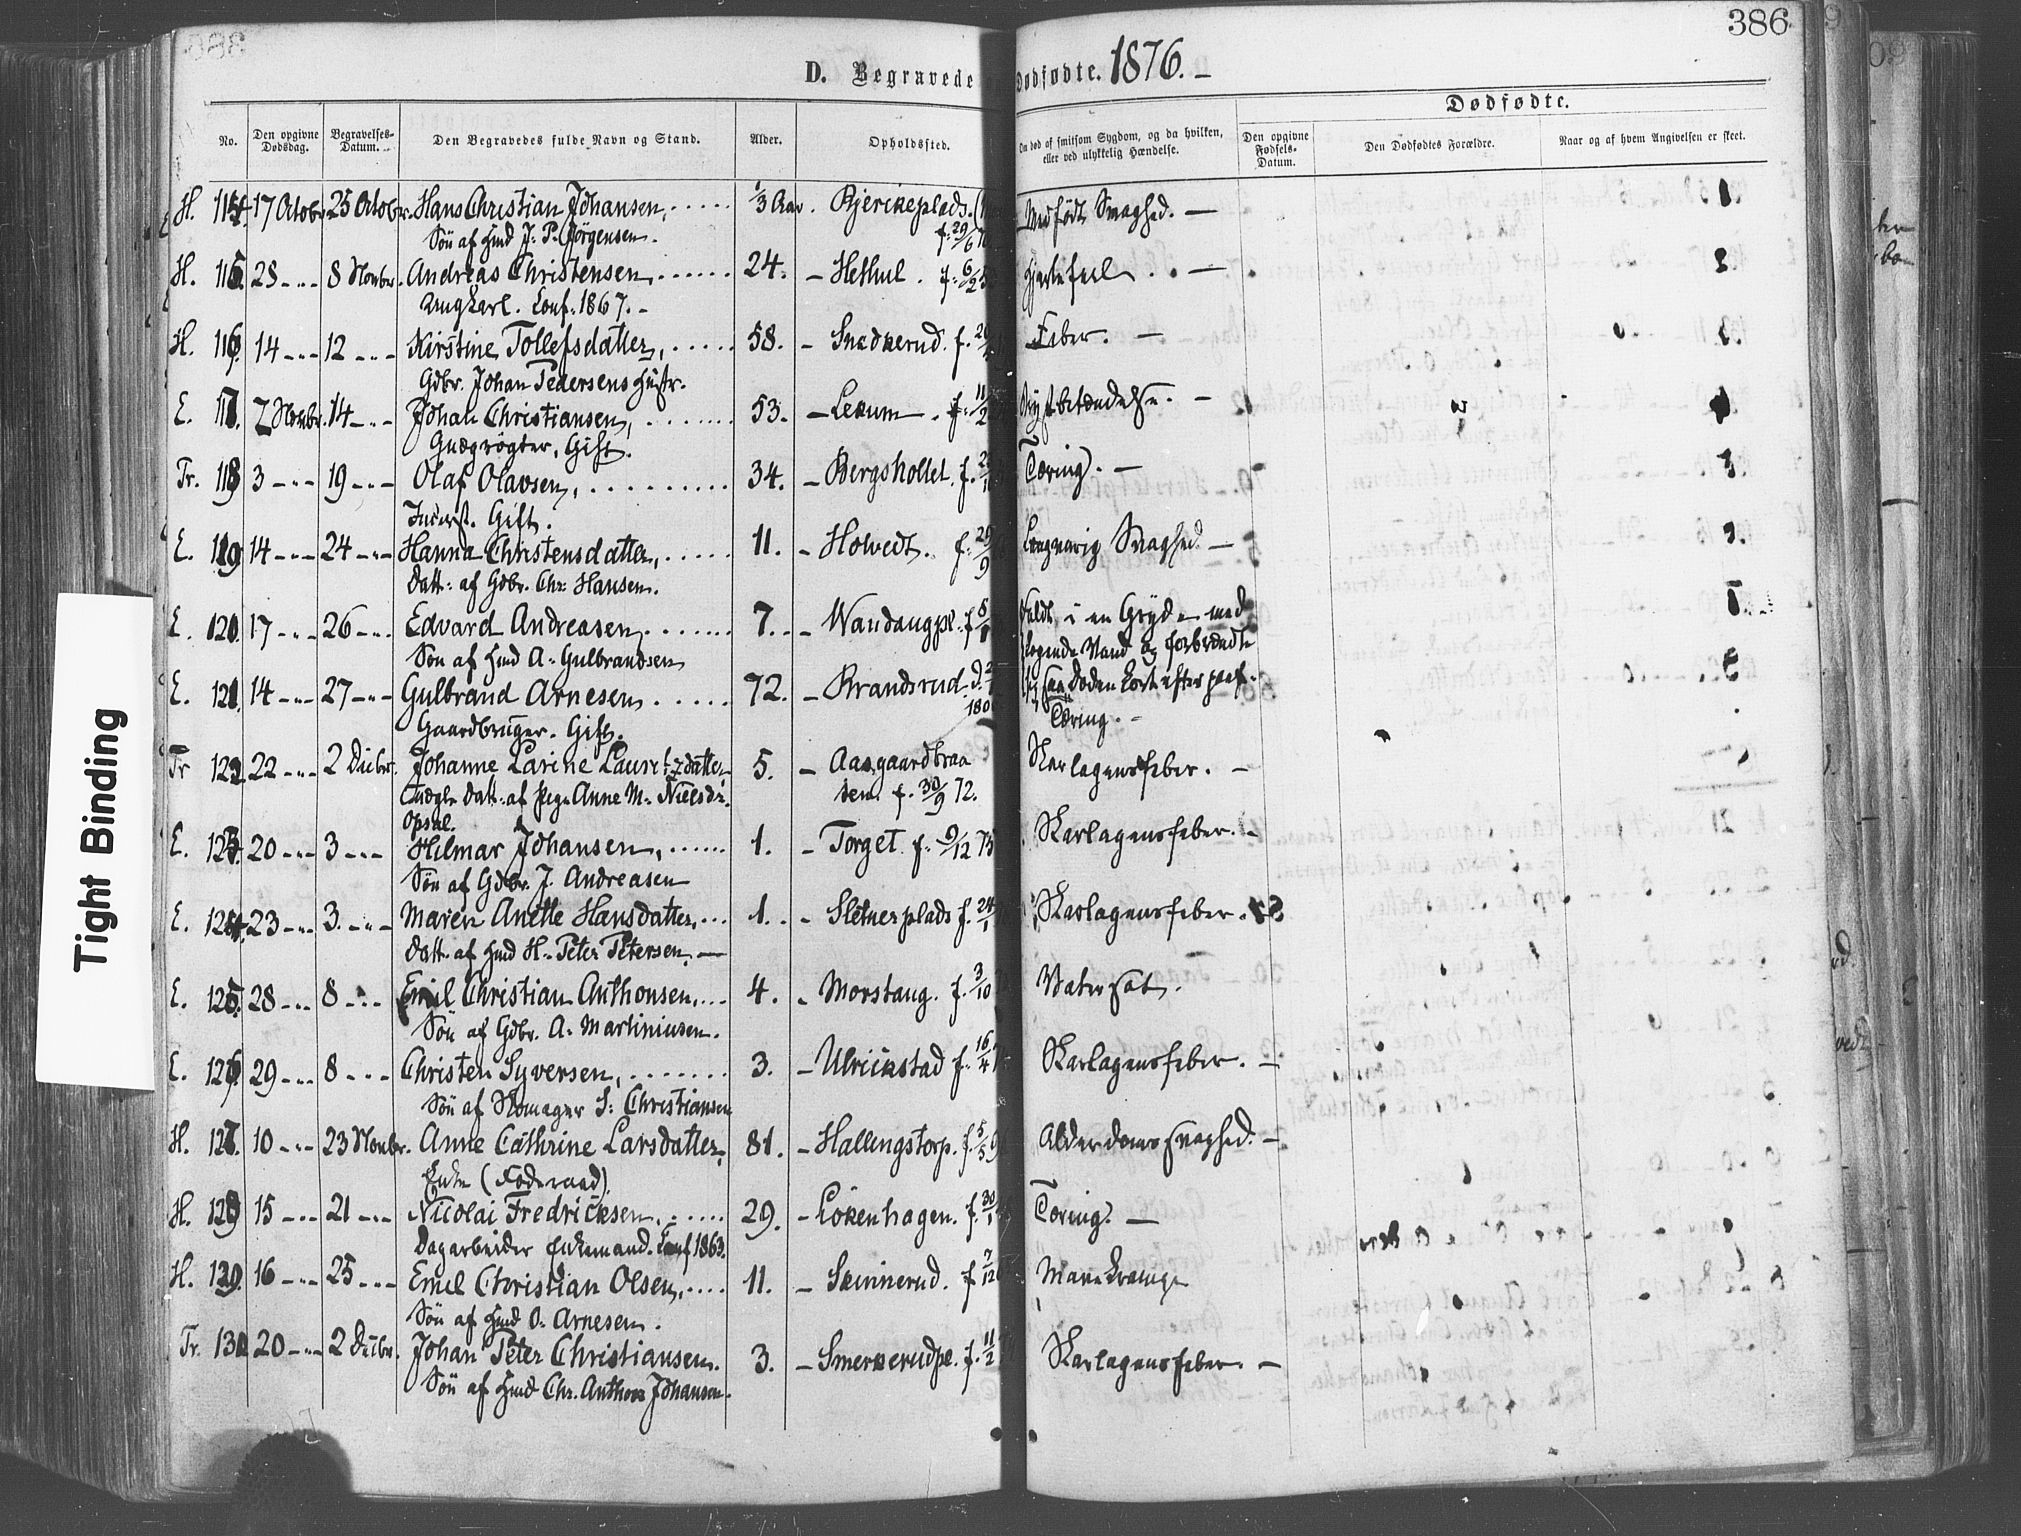 386
D. Begravede Dødfødte. 1876. –
Dødfødte.
No. Den opgivne Dødsdag. Begravelses-Datum. Den Begravedes fulde Navn og Stand. Alder. Opholdssted. Om død af smitsom Sygdom, og da hvilken, eller ved ulykkelig Hændelse. Den opgivne Fødsels-Datum. Den Dødfødtes Forældre. Naar og af hvem Angivelsen er skeet.
H. 114. 17 Octobr. 25 Octobr. Hans Christian Johansen, 1/3 Aar. Bjerkeplads. Medfødt Svaghed. –
Søn af Hmd J. P. Jørgensen. f. 29/6
H. 115. 28 - „ - 8 Novbr. Andreas Christensen, 24. – Hesthul. f. 6/2 Hjertefeil. –
Ungkarl. Conf. 1867. –
H. 116. 14 - „ - 12 - „ - Kirstine Tollefsdatter, 58. – Snekkerud. f. Feber. –
Gdbr. Johan Pedersens Hustr.
E. 117. 7 Novbr. 14 - „ - Johan Christiansen, 53. – Lekum. f. 11/2 Brystbetændelse. –
Qvægrøgter, Gift.
Tr. 118 3 - „ - 19 - „ - Olaf Olavsen, 34. – Bergskollet. f. Tæring. –
Inderst. Gift.
E. 119 14 - „ - 24 - „ - Hanna Christensdatter, 11. – Holvedt. f. 29/9 Langvarig Svaghed. –
Datt. af Gdbr. Chr. Hansen.
E. 120. 17 - „ - 26 - „ - Edvard Andreasen, 7. – Wandaugpl. f. Faldt i en Gryde med
Søn af Hmd A. Gulbrandsen kogende Vand og forbrændte
E. 121. 14 - „ - 27 - „ - Gulbrand Arnesen, 72. – Brandsrud. sig saa Døden kort efter paaf.
Gaardbruger. Gift. Tæring. –
Tr 122 22 - „ - 2 Decbr. Johanne Larine Lauritzdatter, 5. – Aasgaardbraa Skarlagensfeber. –
Uægte Datt. af Pige Anne M. Nielsdr. ten. f. 30/9 72.
Opsal.
E. 123. 20 - „ - 3 - „ - Hilmar Johansen, 1. – Torget. f. 9/12 75 Skarlagensfeber. –
Søn af Gdbr. J. Andreasen
E. 124. 23 - „ - 3. - „ - Maren Anette Hansdatter, 1. – Sletnerplads f. 24/ Skarlagensfeber.
Datt. af Hmd H. Peter Petersen. –
E. 125. 28 - „ - 8 - „ - Emil Christian Anthonsen, 4. – Morstaug. f. 3/10 Vatersot.
Søn af Gdbr. A. Martiniusen.
E. 126. 29 - „ - 8 - „ - Christen Syversen, 3. – Ulrickstad f. 16/4 Skarlagensfeber. –
Søn af Skomager S. Christiansen
H. 127. 10 - „ - 23 Novbr. Anne Cathrine Larsdatter, 81. – Hallingstorp. f. 5/5 Alderdomssvaghed. –
Enke (Føderaad).
H. 128 15 - „ - 21 - „ - Nicolai Fredricksen, 29. – Løkenhagen. f. 30/1 Tæring. –
Dagarbeider Enkemand. Conf 1863.
H. 129. 16 - „ - 25 - „ - Emil Christian Olsen, 11. – Skinnerud. f. 7/12 Mavekrampe
Søn af Hmd O. Arnesen.
Tr. 130 20 - „ - 2 Decbr. Johan Peter Christiansen. 3. – Smerkerudpl. f. 11/2 Skarlagensfeber. –
Søn af Hmd Chr. Anthon Johansen.
Tight Binding